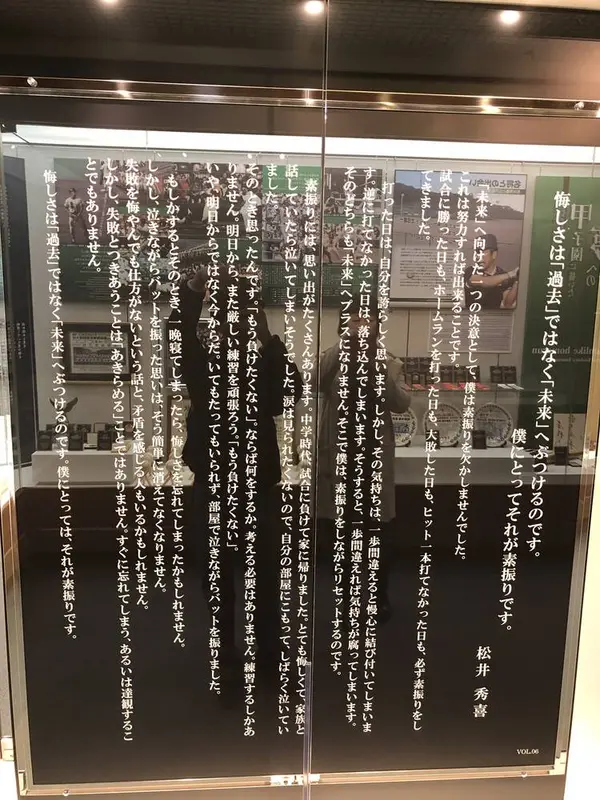 悔しさは「過去」ではなく「未来」へぶつけるのです。
僕にとってそれが素振りです。
松井 秀喜
「未来」へ向けた一つの決意として、僕は素振りを欠かしませんでした。
これは努力すれば出来ることです。
試合に勝った日も、ホームランを打った日も、大敗した日も、ヒット一本打てなかった日も、必ず素振りをし
てきました。
打った日は、自分を誇らしく思います。しかし、その気持ちは、一歩間違えると慢心に結び付いてしまいま
す。逆に打てなかった日は、落ち込んでしまいます。そうすると、一歩間違えれば気持ちが腐ってしまいます。
そのどちらも「未来」へプラスになりません。そこで僕は、素振りをしながらリセットするのです。
素振りには、思い出がたくさんあります。中学時代、試合に負けて家に帰りました。とても悔しくて、家族と
話していたら泣いてしまいそうでした。涙は見られたくないので、自分の部屋にこもって、しばらく泣いてい
ました。
そのとき思ったんです。「もう負けたくない」。ならば何をするか。考える必要はありません。練習するしかあ
りません。明日から、また厳しい練習を頑張ろう。「もう負けたくない」。
いや、明日からではなく今からだ。いてもたってもいられず、部屋で泣きながらバットを振りました。
もしかするとそのとき、一晩寝てしまったら、悔しさを忘れてしまったかもしれません。
しかし、泣きながらバットを振った思いは、そう簡単に消えてなくなりません。
失敗を悔やんでも仕方がないという話と、矛盾を感じる人もいるかもしれません。
しかし、失敗とつきあうことは「あきらめる」ことではありません。すぐに忘れてしまう、あるいは達観するこ
とでもありません。
悔しさは「過去」ではなく「未来」へぶつけるのです。僕にとっては、それが素振りです。
VOL.06